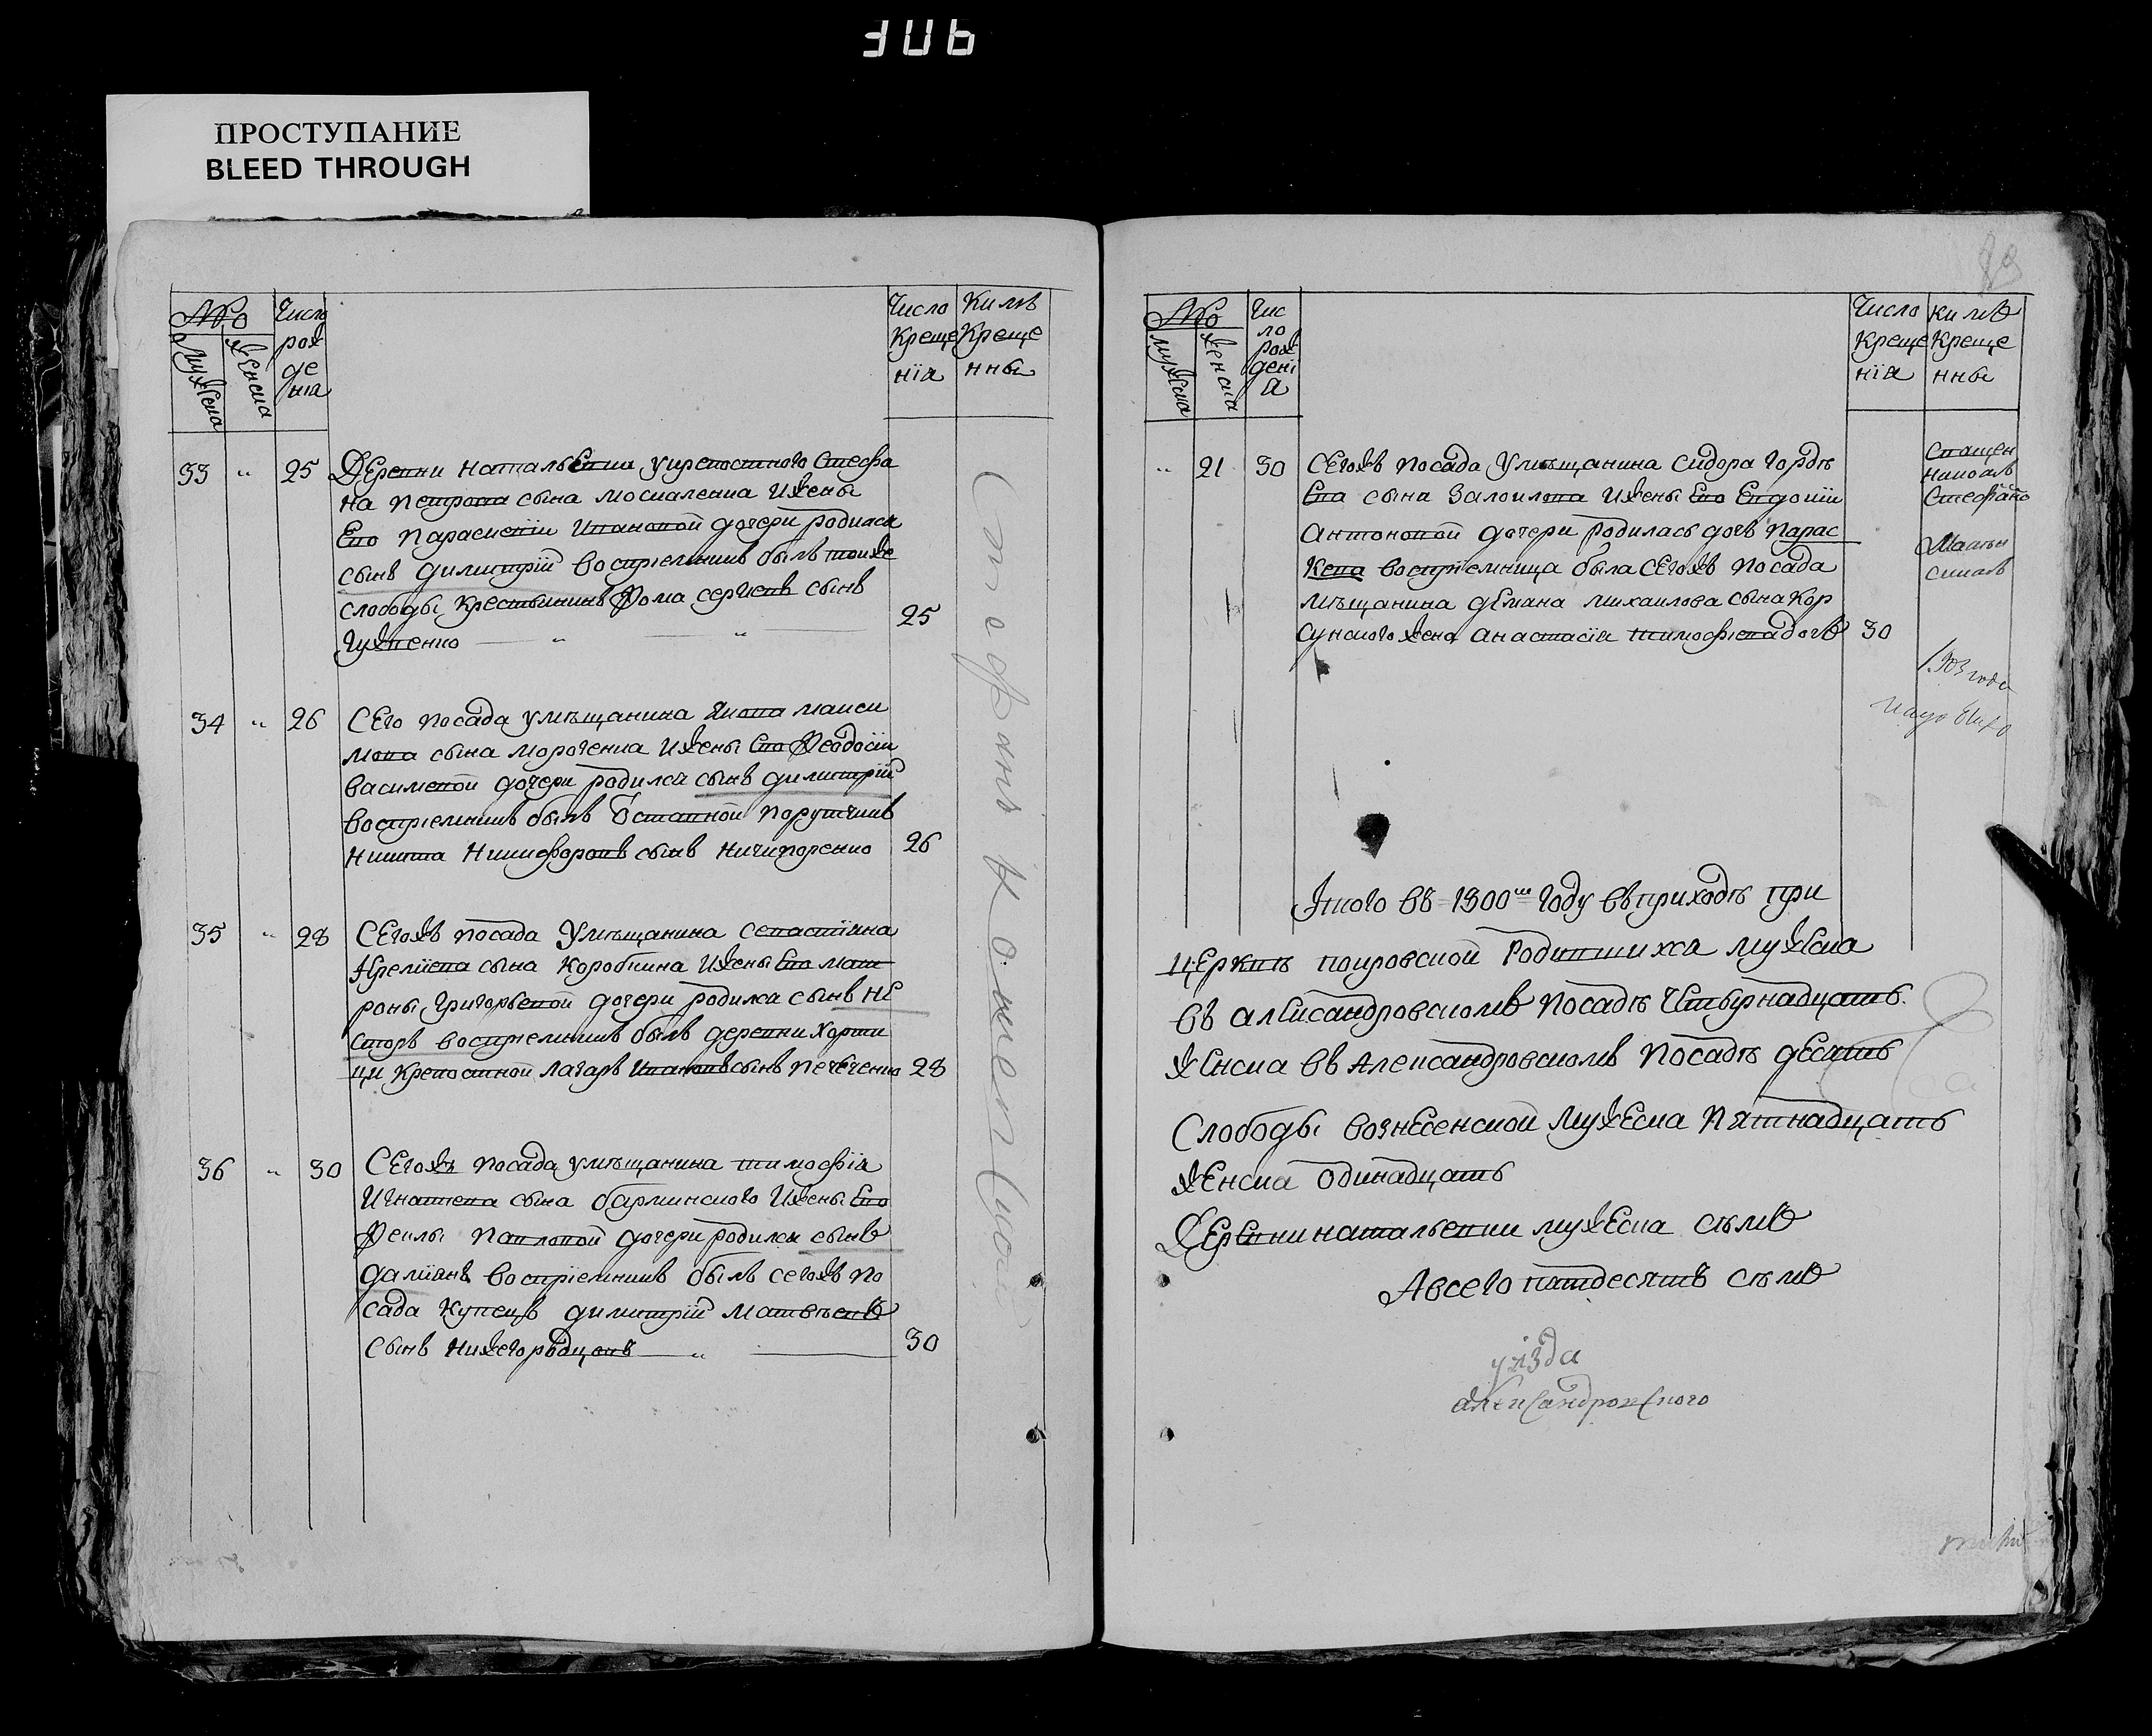 306
ПРОСТУПАНИЕ
BLEED THROUGH
№
мужеска
женска
Число
рож
де
ния
Число
Креще
нїя
Кимъ
Креще
нны
33 „ 25 Деревни натальевки укрепостного Стефа
на Петрова сына москаленка Ижены
Его Параскевїи Ивановой дочери родился
сынъ димитрїй воспрїемникъ былъ тоиже
слободы Крестьянинъ Фома сергїевъ сынъ
Гужвенко „ „ 25
34 „ 26 СЕго посада умѣщанина Якова макси
мова сына мороченка Ижены Его Феодосїи
василиевой дочери родился сынъ димитрїй
воспрїемникъ былъ Отставной Порутчикъ
Никита Никифоровъ сынъ Ничипоренко 26
35 „ 28 СЕгожъ посада Умѣщанина севастїяна
сына Коробкина Ижены Его мат
роны Григорьевой дочери родился сынъ НЕ
сторъ воспрїемникъ былъ деревни хорти
ци Крепостной Лазаръ Ивановъ сынъ Печеченко 28
36 „ 30 СЕгожъ посада умѣщанина тимофїя
Игнатїева сына барминского Ижены Его
Феклы Павловой дочери родился сынъ
дамїянъ воспрїемникъ былъ сегожъ по
сада Купецъ димитрїй Матвѣевъ
Сынъ Нижегородцовъ „ 30
Стефанъ Компанской
89
№
мужеска
женска
Чис
ло
рож
денї
я
Число
Креще
нїя
кимъ
Креще
нны
„ 21 30 СЕгожъ посада Умѣщанина Сидора Гордѣ
Ева сына Заломлова Ижены Его Евдокїи
Антоновой дочери родилась дочь Парас
Кева воспрїемница была СЕгожъ посада
мѣщанина дЕмана михаилова сына Кор
сунского жена Анастасїя тимофїева дочь 30
Священ
никомъ
Стефано
мъ
Итого въ 1800мъ Году въприходѣ при
цЕрквѣ покровской Родившихся мужеска
въ алЕксандровскомъ посадѣ Четырнадцать
жЕнска въ Александровскомъ посадѣ дЕсять
Слободы вознЕсенской мужЕска Пятнадцать
жЕнска одинадцать
ДЕрЕвни натальевки мужЕска сѣмъ
Авсего пятдесятъ сѣмъ
уѣзда
александровского